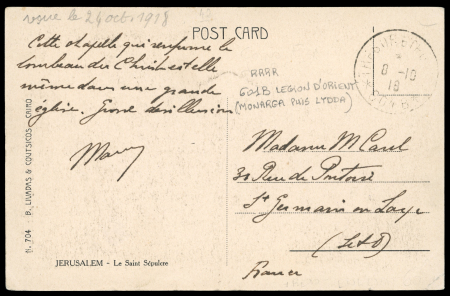 reçue le 24 oct. 1918
POST CARD
Cette chapelle qui renferme le
tombeau du Christ est elle
même dans une grande
église. Grosse désillusion
RRRR
601B LEGION D'ORIENT
(MONARGA PUIS LYDDA)
8-10
18
Madame M Carel
Rue de Pontoise
St Germain en Laye
(S et O)
France
N. 704 - B. LIVADAS & COUTSICOS, CAIRO
JERUSALEM - Le Saint Sépulcre